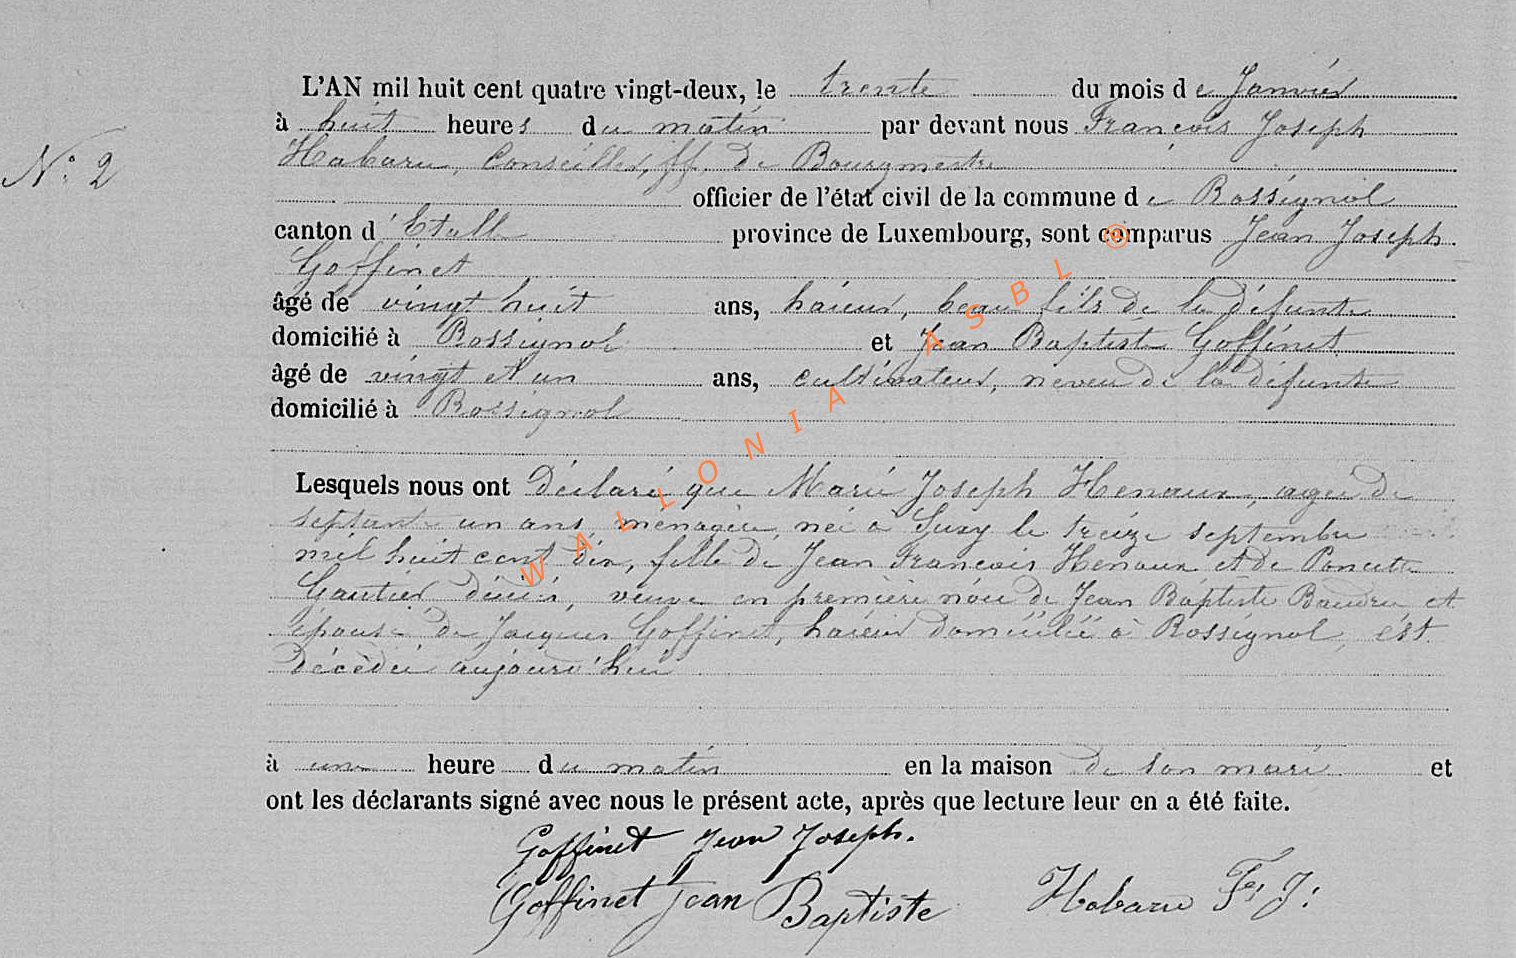 L'AN mil huit cent quatre vingt-deux, le trente du mois de Janvier
à huit heures du matin par devant nous François Joseph
N° 2
Habaru, Conseiller, ff. de Bourgmestre
officier de l'état civil de la commune de Rossignol
canton d'Etalle province de Luxembourg, sont comparus Jean Joseph
Goffinet
âgé de vingt huit ans, haïeur, beau fils de la défunte
domicilié à Rossignol et Jean Baptiste Goffinet
âgé de vingt et un ans, cultivateur, neveu de la défunte
domicilié à Rossignol
Lesquels nous ont déclaré que Marie Joseph Henaux, agée de
septante un ans, ménagère, née à Suxy le treize septembre
mil huit cent dix, fille de Jean Francois Henaux et de Poncette
Gautier, veuve en première noce de Jean Baptiste et
épouse de Jacques Goffinet, haïeur domiciliée à Rossignol, est
décédée aujourd'hui
à une heure du matin en la maison de son mari et
ont les déclarants signé avec nous le présent acte, après que lecture leur en a été faite.
Goffinet Jean Joseph.
Goffinet Jean Baptiste Habaru F. J.
WALLONIA ASBL ©